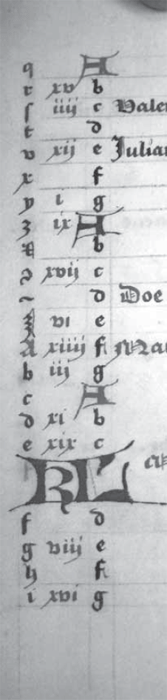 q A
r xv b
ſ iiij c Vale
t d
v xij e Julia
x f
y i g
z ix A
b
xvij c
d Doe
vi e
A xiiij f Ma
b iij g
c A
d xi b
e xix c
KL
f d
g viij e
h f
i xvi g